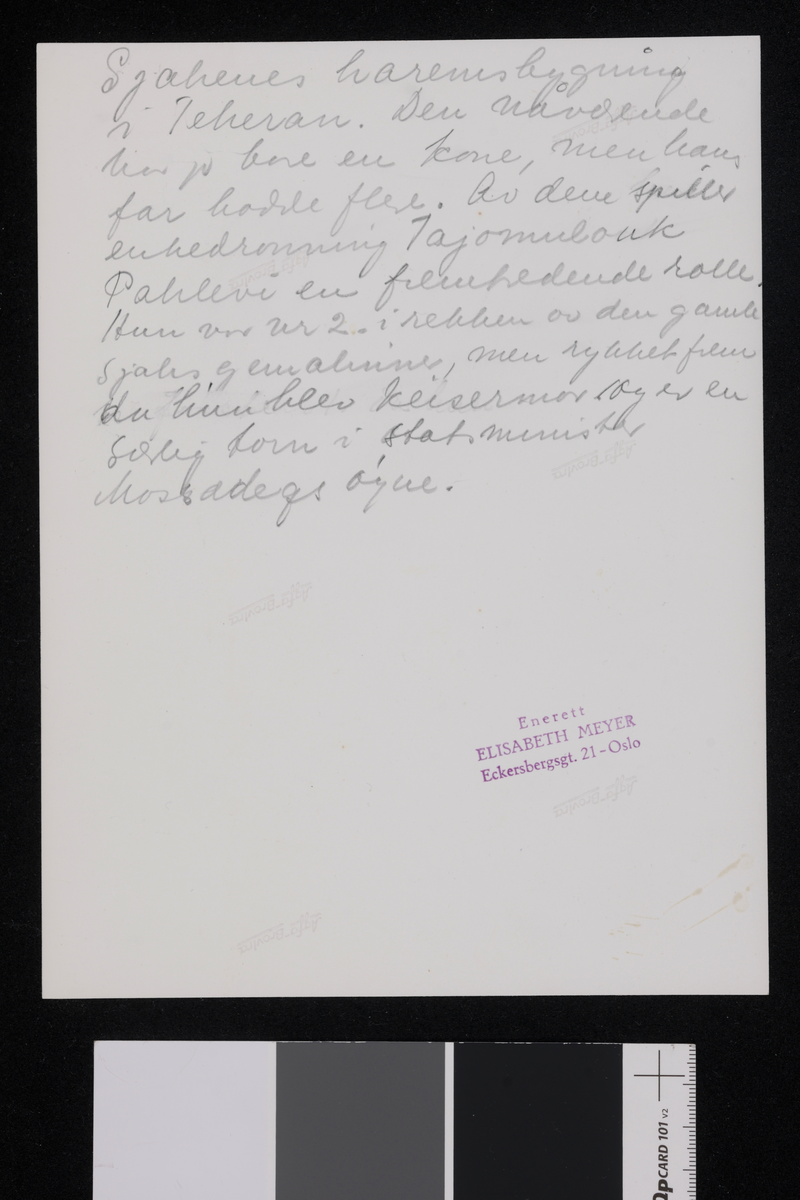 Sjahenes haremsbygning
i Teheran. Den nåværende
har jo bare en kone, men hans
far hadde flere. Av dem spiller
enkedronning Tajomulouk
Pahlevi en fremtredende rolle.
Hun var nr 2. i rekken av den gamle
Sjahs gemalinner, men rykket frem
da hun blev keisermor og er en
særlig torn i statsminister
Mossadeqs øyne.
Enerett
ELISABETH MEYER
Eckersbergsgt. 21-Oslo
CARD 101 v2